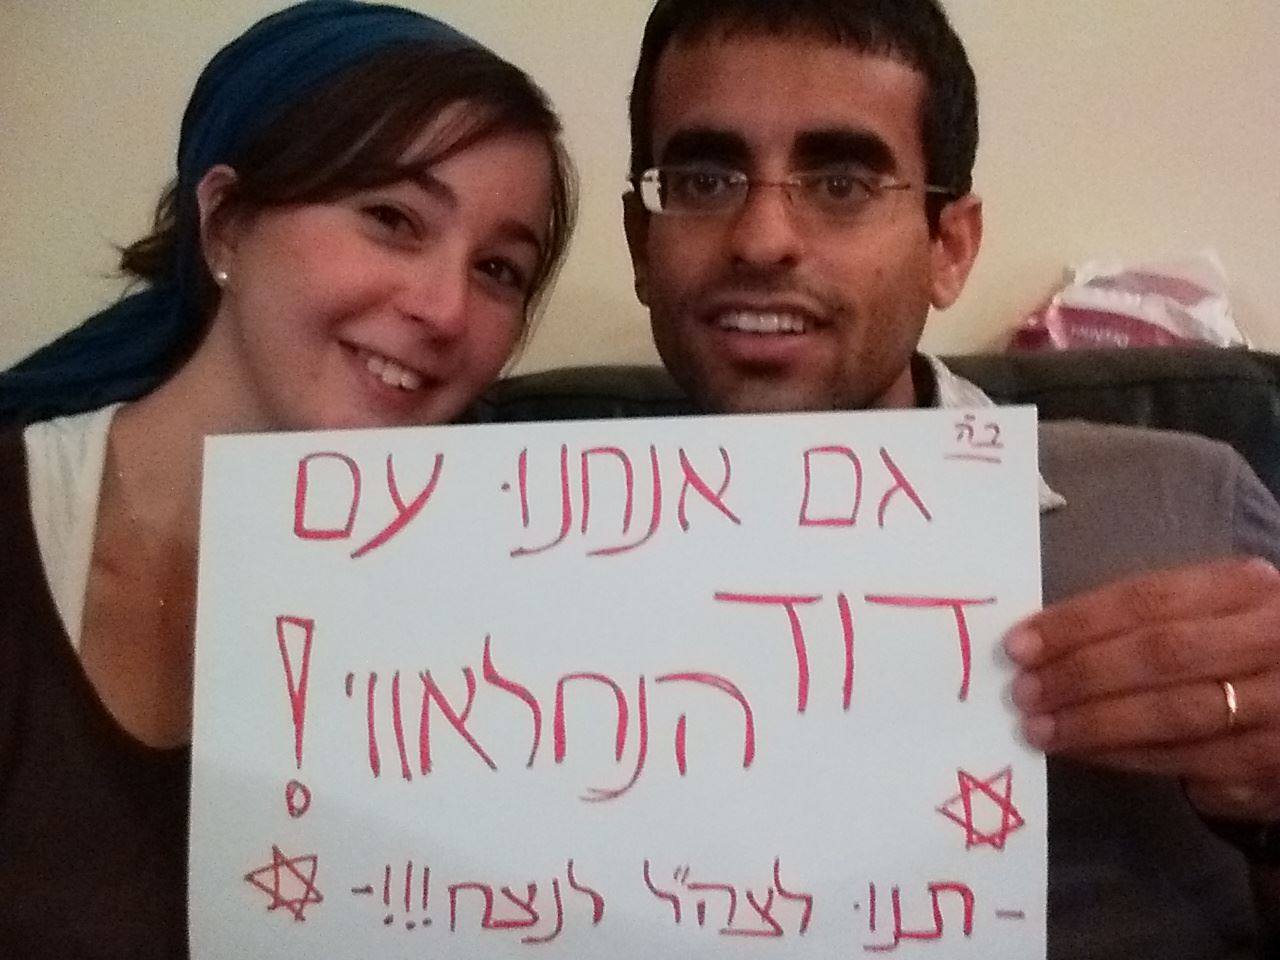 ב"ה
גם אנחנו עם
דוד
הנחלאווי!
- תנו לצה"ל לנצח!!!-